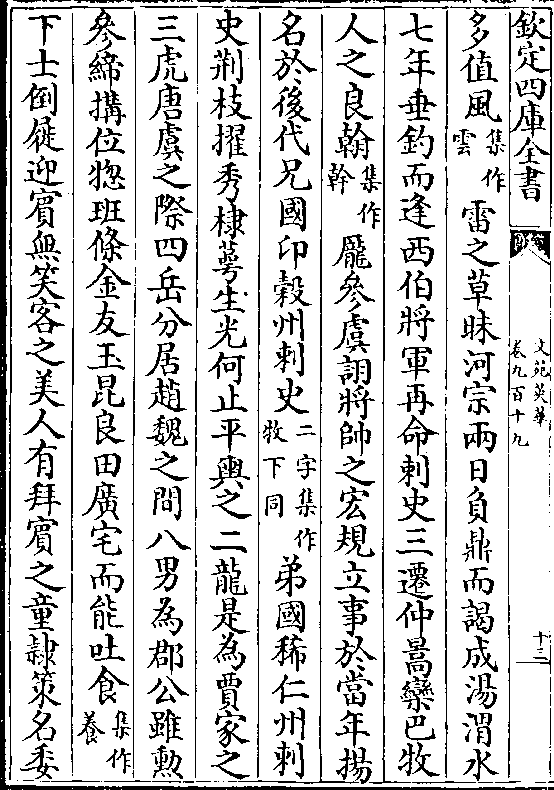 欽定四庫全書
文苑英華
卷九百十九
十三
多值風集作雲雷之草昧河宗兩日負鼎而謁成湯渭水
七年垂釣而逢西伯將軍再命刺史三遷仲暠欒巴牧
人之良翰集作幹龎參虞詡將帥之宏規立事於當年揚
名於後代兄國印榖州刺史二字集作牧下同弟國稀仁州刺
史荆枝擢秀棣萼生光何止平輿之二龍是為賈家之
三虎唐虞之際四岳分居趙魏之間八男為郡公雖勲
參締搆位揔班條金友玉昆良田廣宅而能吐食集作養
下士倒屣迎賓無笑客之美人有拜賓之童隷策名委